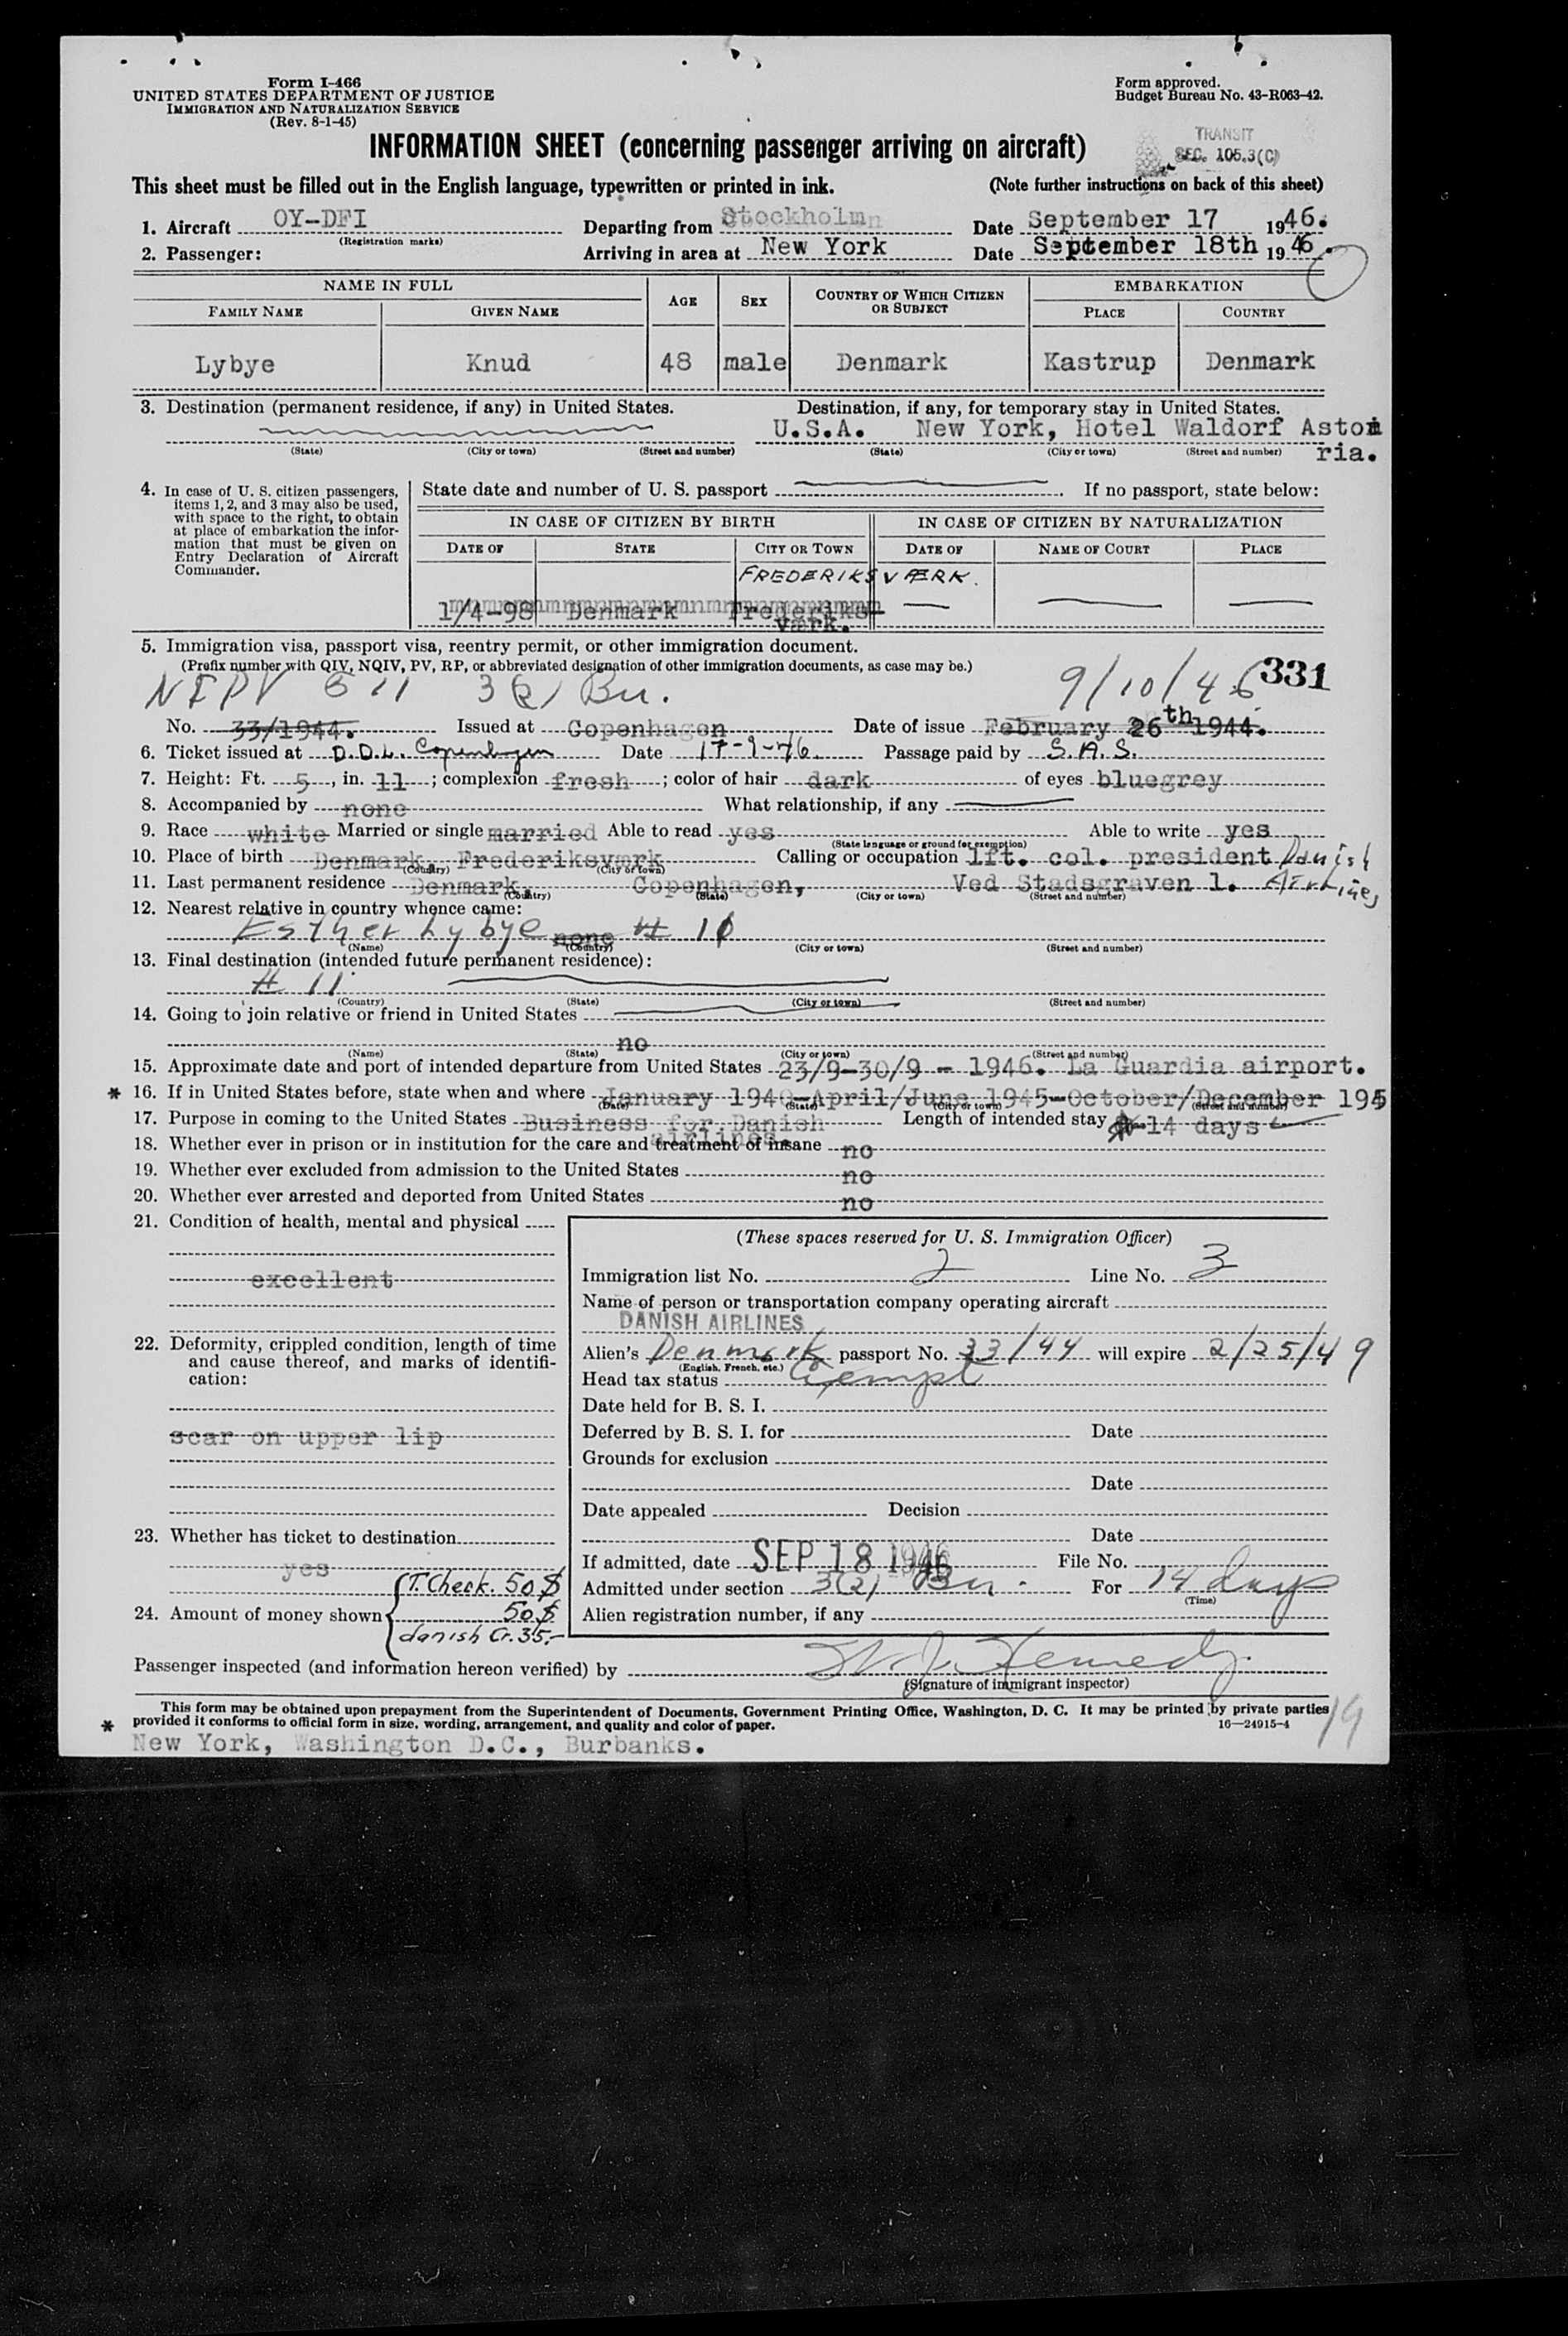 Form I-466
UNITED STATES DEPARTMENT OF JUSTICE
IMMIGRATION AND NATURALIZATION SERVICE
(Rev. 8-1-45)
Form approved.
Budget Bureau No. 43-R063-42.
INFORMATION SHEET (concerning passenger arriving on aircraft)
TRANSIT
SEC. 105.3(C)
This sheet must be filled out in the English language, typewritten or printed in ink. (Note further instructions on back of this sheet)
1. Aircraft OY-DFI Departing from Stockholm Date September 17 1946.
(Registration marks)
2. Passenger: Arriving in area at New York Date September 18th 1946.
NAME IN FULL AGE SEX COUNTRY OF WHICH CITIZEN OR SUBJECT EMBARKATION
FAMILY NAME GIVEN NAME PLACE COUNTRY
Lybye Knud 48 male Denmark Kastrup Denmark
3. Destination (permanent residence, if any) in United States. Destination, if any, for temporary stay in United States.
U.S.A. New York, Hotel Waldorf Astoi
ria.
(State) (City or town) (Street and number) (State) (City or town) (Street and number)
4. In case of U. S. citizen passengers, items 1, 2, and 3 may also be used, with space to the right, to obtain at place of embarkation the information that must be given on Entry Declaration of Aircraft Commander.
State date and number of U. S. passport If no passport, state below:
IN CASE OF CITIZEN BY BIRTH IN CASE OF CITIZEN BY NATURALIZATION
DATE OF STATE CITY OR TOWN DATE OF NAME OF COURT PLACE
FREDERIKSVÆRK.
1/4-98 Denmark Frederiks-
værk.
5. Immigration visa, passport visa, reentry permit, or other immigration document.
(Prefix number with QIV, NQIV, PV, RP, or abbreviated designation of other immigration documents, as case may be.)
3(2) Bu. 9/10/46 331
No. 33/1944. Issued at Copenhagen Date of issue February 26th 1944.
6. Ticket issued at D.D.L. Copenhagen Date 17-9-46. Passage paid by S.A.S.
7. Height: Ft. 5, in. 11; complexion fresh; color of hair dark of eyes bluegrey
8. Accompanied by none What relationship, if any
9. Race white Married or single married Able to read yes Able to write yes
(State language or ground for exemption)
10. Place of birth Denmark, Frederiksværk Calling or occupation lft. col. president Danish
Airlines
(Country) (City or town)
11. Last permanent residence Denmark, Copenhagen, Ved Stadsgraven 1.
(Country) (State) (City or town) (Street and number)
12. Nearest relative in country whence came:
Esther Lybye none # 11
(Name) (Country) (City or town) (Street and number)
13. Final destination (intended future permanent residence):
# 11
(Country) (State) (City or town) (Street and number)
14. Going to join relative or friend in United States
no
(Name) (State) (City or town) (Street and number)
15. Approximate date and port of intended departure from United States 23/9-30/9 - 1946. La Guardia airport.
* 16. If in United States before, state when and where January 1940-April/June 1945-October/December 1945
(Date) (State) (City or town) (Street and number)
17. Purpose in coming to the United States Business for Danish Length of intended stay 14 days
airlines.
18. Whether ever in prison or in institution for the care and treatment of insane no
19. Whether ever excluded from admission to the United States no
20. Whether ever arrested and deported from United States no
21. Condition of health, mental and physical
excellent
22. Deformity, crippled condition, length of time and cause thereof, and marks of identification:
scar on upper lip
23. Whether has ticket to destination
yes
24. Amount of money shown
T. Check. 50 $
50 $
danish Cr. 35.-
(These spaces reserved for U. S. Immigration Officer)
Immigration list No. 2 Line No. 3
Name of person or transportation company operating aircraft
DANISH AIRLINES
Alien's Denmark passport No. 33/44 will expire 2/25/49
(English, French, etc.)
Head tax status Exempt
Date held for B. S. I.
Deferred by B. S. I. for Date
Grounds for exclusion
Date
Date appealed Decision
Date
If admitted, date SEP 18 1946 File No.
Admitted under section 3(2) Bu. For 14 days
(Time)
Alien registration number, if any
Passenger inspected (and information hereon verified) by Kennedy
(Signature of immigrant inspector)
This form may be obtained upon prepayment from the Superintendent of Documents, Government Printing Office, Washington, D. C. It may be printed by private parties
provided it conforms to official form in size, wording, arrangement, and quality and color of paper. 16—24915-4
19
* New York, Washington D.C., Burbanks.